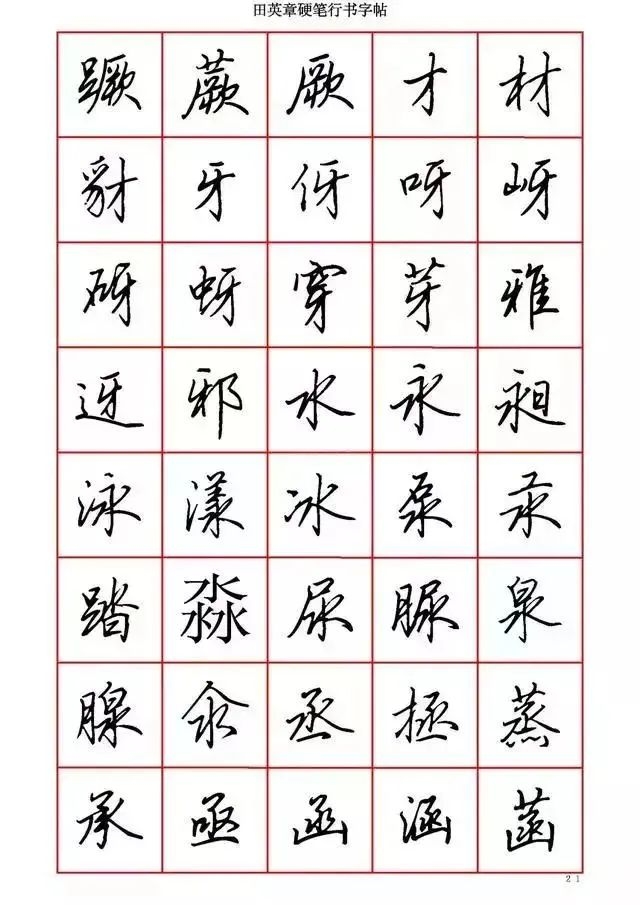 田英章硬笔行书字帖
蹶蕨厥才材
豺牙伢呀岈
砑蚜穿芽雅
迓邪水永昶
泳漾冰泵汞
踏淼尿脲泉
腺汆丞拯蒸
承亟函涵菡
21